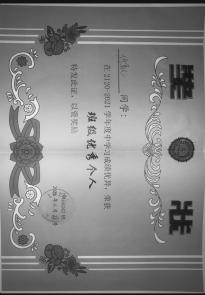 奖状
同学：
在 2120-2021 学年度中学习成绩优异，荣获
班级优秀个人
特发此证，以资奖励